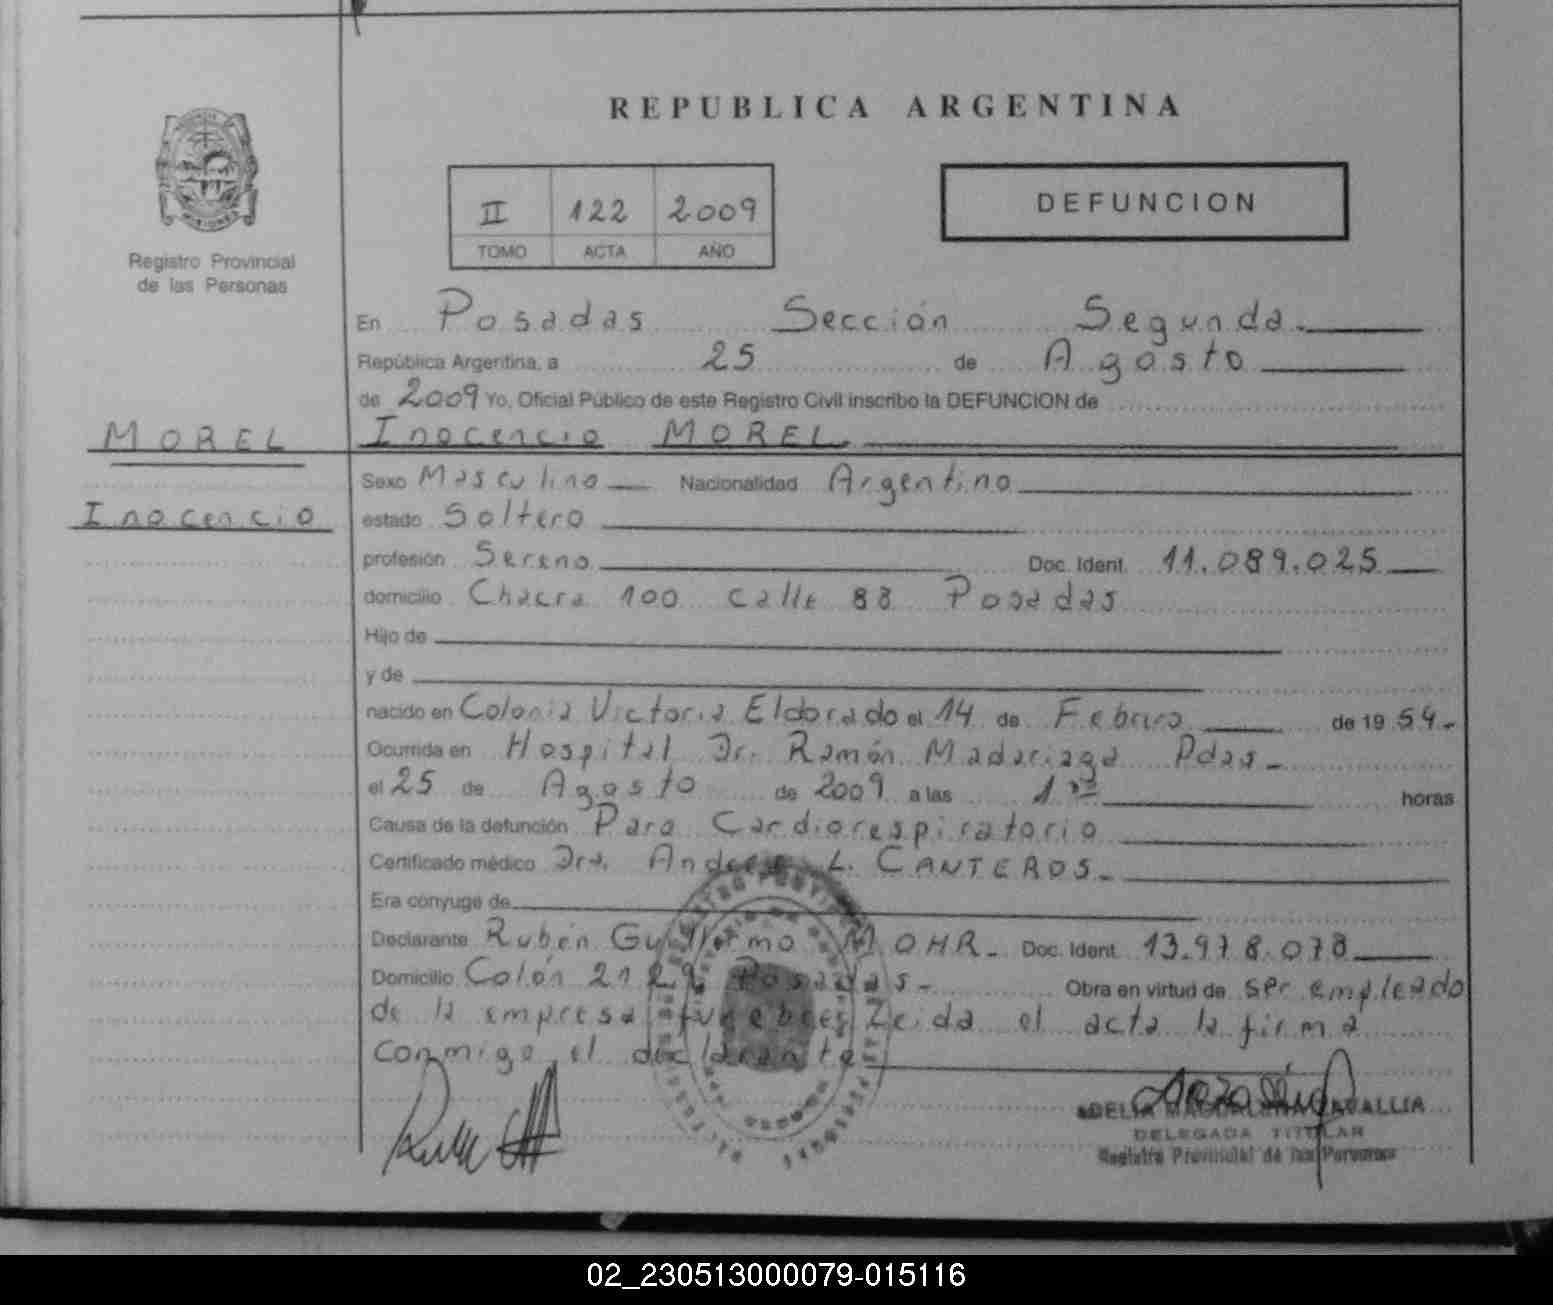 REPUBLICA ARGENTINA
II 122 2009
TOMO ACTA AÑO
DEFUNCION
Registro Provincial
de las Personas
En Posadas Sección Segunda.
República Argentina, a 25 de Agosto
de 2009 Yo, Oficial Público de este Registro Civil inscribo la DEFUNCION de
MOREL
Inocencio MOREL
Inocencio
Sexo Masculino Nacionalidad Argentino
estado Soltero
profesión Sereno Doc. Ident. 11.089.025
domicilio Chacra 100 calle 88 Posadas
Hijo de
y de
nacido en Colonia Victoria Eldorado el 14 de Febrero de 19 54.
Ocurrida en Hospital Dr. Ramón Madariaga Pdas.
el 25 de Agosto de 2009 a las 1 horas
Causa de la defunción Paro Cardiorespiratorio
Certificado médico Dra. Andrea L. CANTEROS.
Era cónyuge de
Declarante Rubén Guillermo MOHR. Doc. Ident. 13.978.078
Domicilio Colón 2129 Posadas. Obra en virtud de ser empleado
de la empresa funebre leida el acta la firma
conmigo el declarante
DELEGADA TITULAR
Registro Provincial de las Personas
02_230513000079-015116